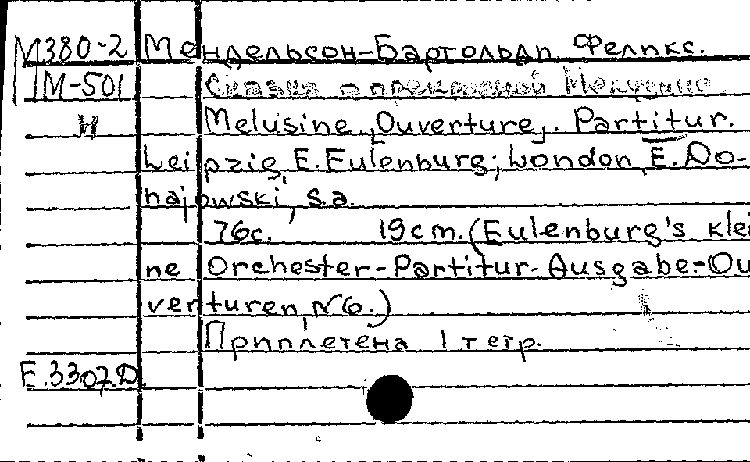 М380-2 Мендельсон-Бартольди, Феликс.
1М-501 Сказка о прекрасной Мелузине.
н Melusine. [Ouverture]. Partitur.
Leipzig, E. Eulenburg; London, E. Do-
najowski, s.a.
76с. 19cm. (Eulenburg's klei
ne Orchester-Partitur-Ausgabe-Ou
verturen, N6.)
Приплетена 1 тетр.
Е.3307.D.